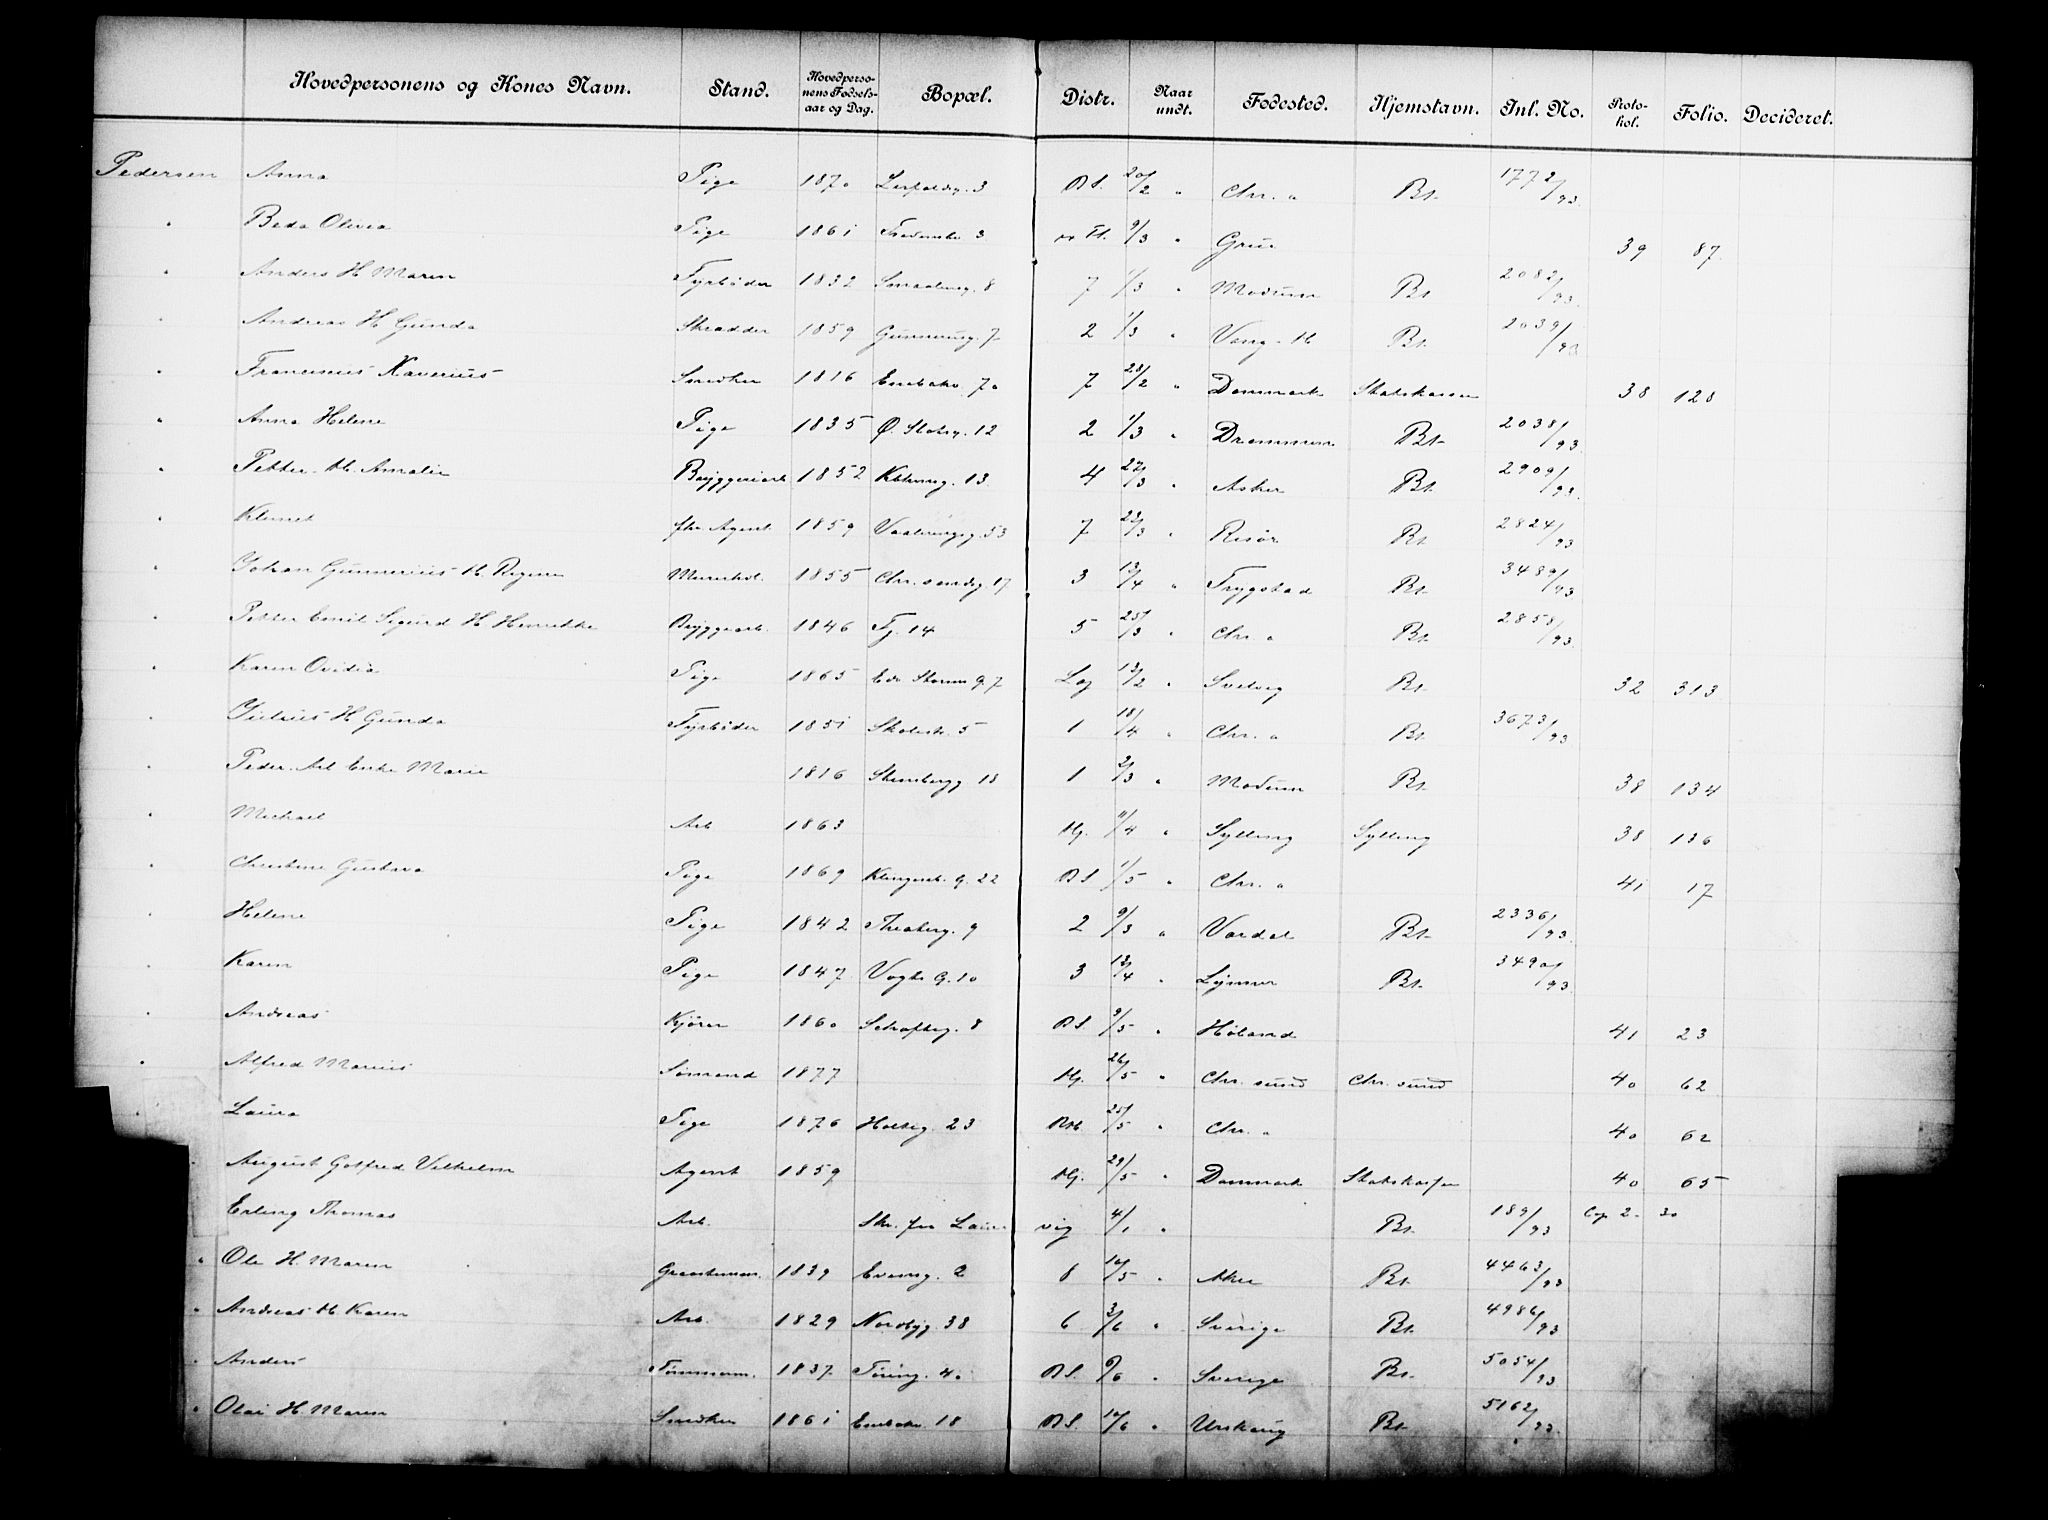 Hovedpersonens og Kones Navn. Stand. Hovedperso-nens Fødsels-aar og Dag. Bopæl. Distr. Naar undt. Fødested. Hjemstavn. Inl. No. Proto-kol. Folio. Decideret.
Pedersen Anna Pige 1870 3 B S. 20/2 " Chr. a Bt. 1772/93.
" Beda Olivia Pige 1861 Fredensb. 3 9/3 " Grue 39 87.
" Anders H Maren Fyrbøder 1832 Smaaleng. 8 7 1/3 " Modum Bt. 2082/93.
" Andreas H Gunda Skrædder 1859 Gunnerusg. 7 2 1/3 " Vang. H Bt. 2039/93.
" Franciscus Xaverius Snedker 1816 Enebakv. 7a 7 28/2 " Danmark Statskassen 38 128
" Anna Helene Pige 1835 Ø. Slotsg. 12 2 1/3 " Drammen Bt. 2038/93.
" Petter H. Amalie Bryggeriarb 1852 13 4 27/3 " Asker Bt. 2909/93.
" Klemet fhv. Agent 1859 Vaalerengg. 53 7 23/3 " Risør Bt. 2824/93
" Johan Gunnerius H. Murerhdl. 1855 Chr. sandg. 17 3 13/4 " Trygstad Bt. 3489/93
" Petter Emil Sigurd H Henrikke Bryggearb. 1846 14 5 25/3 " Chr. a Bt. 2858/93.
" Karen Ovidia Pige 1865 Edv Storms G. 7 Log 13/2 " Svelvig Bt. 32 313
" Julius H Gunda Fyrbøder 1851 Skolest. 5 1 18/4 " Chr. a Bt. 3673/93
" Peder. Arb Enke Marie 1816 Stensbergg 18 1 2/3 " Modum Bt. 38 134
" Michael Arb 1863 Hj. 11/4 " Sylling Sylling 38 136
" Christine Gustava Pige 1869 Klingenb. G. 22 B S 1/5 " Chr. a 41 17
" Helene Pige 1842 Theaterg. 9 2 9/3 " Vardal Bt. 2336/93.
" Karen Pige 1847 Vogts G. 10 3 13/4 " Lynner Bt. 3490/93.
" Andreas Kjører 1860 Schaftlg. 8 B S. 9/5 " Høland 41 23
" Alfred Marius Sømand 1877 Hj. 26/5 " Chr. sund Chr. sund 40 62
" Laura Pige 1876 Holteg. 23 25/5 " Chr. a 40 62
" August Gotfred Vilhelm Agent 1859 Hj. 29/5 " Danmark Statskassen 40 65
Erling Thomas Arb. Skr. fra Laurvig 4/1 " Bt. 189/93 Cop 2. 30
" Ole H. Maren 1839 Evensg. 2 8 16/5 " Aker Bt. 4463/93
" Andreas H. Karen Arb. 1829 Nordbyg. 38 6 3/6 " Sverige Bt. 4986/93
" Anders Tømmerm. 1837 40 B S. 6/6 " Sverige Bt. 5054/93
" Olai H. Maren Snedker 1861 Enebakv. 18 B S. 10/6 " Urskoug Bt. 5162/93.